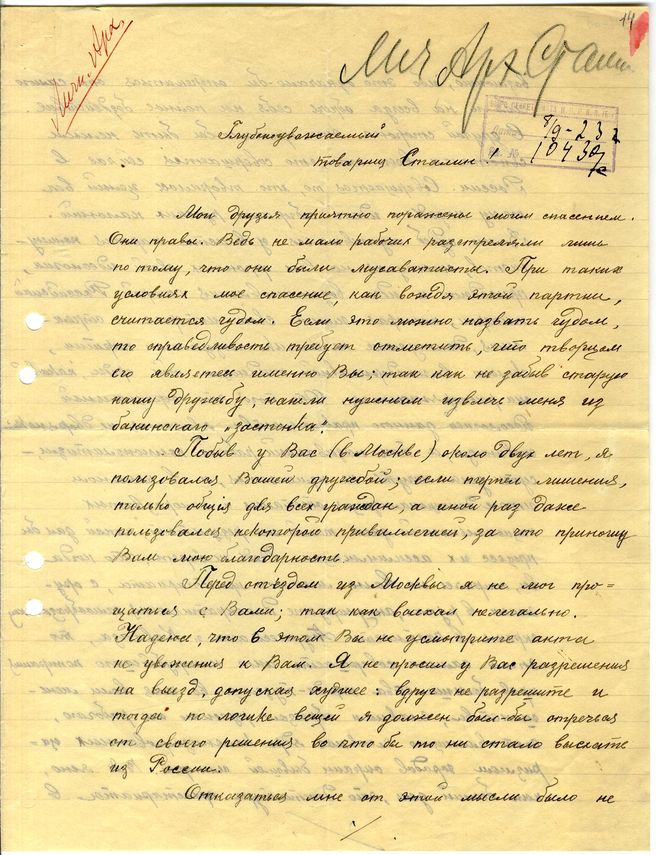 14
Личн. Арх.
Лич Арх. Сталин
8/9-23 г
10430/с
Глубокоуважаемый
товарищ Сталин!
Мои друзья приятно поражены моим спасением.
Они правы. Ведь не мало рабочих разстреляли лишь
по тому, что они были мусаватисты. При таких
условиях мое спасение, как вождя этой партии,
считается чудом. Если это можно назвать чудом,
то справедливость требует отметить, что творцом
его являетесь именно Вы; так как не забыв старую
нашу дружбу, нашли нужным извлечь меня из
бакинского „застенка".
Побыв у Вас (в Москве) около двух лет, я
пользовался Вашей дружбой; если терпел лишения,
только общія для всех граждан, а иной раз даже
пользовался некоторой привиллегией, за что приношу
Вам мою благодарность
Перед отъездом из Москвы я не мог про=
щаться с Вами; так как выехал нелегально.
Надеюсь, что в этом Вы не усмотрите акта
не уважения к Вам. Я не просил у Вас разрешения
на выезд, допуская худшее: вдруг не разрешите и
тогда по логике вещей я должен был-бы отречься
от своего решения во что бы то ни стало выехать
из России.
Отказаться мне от этой мысли было не